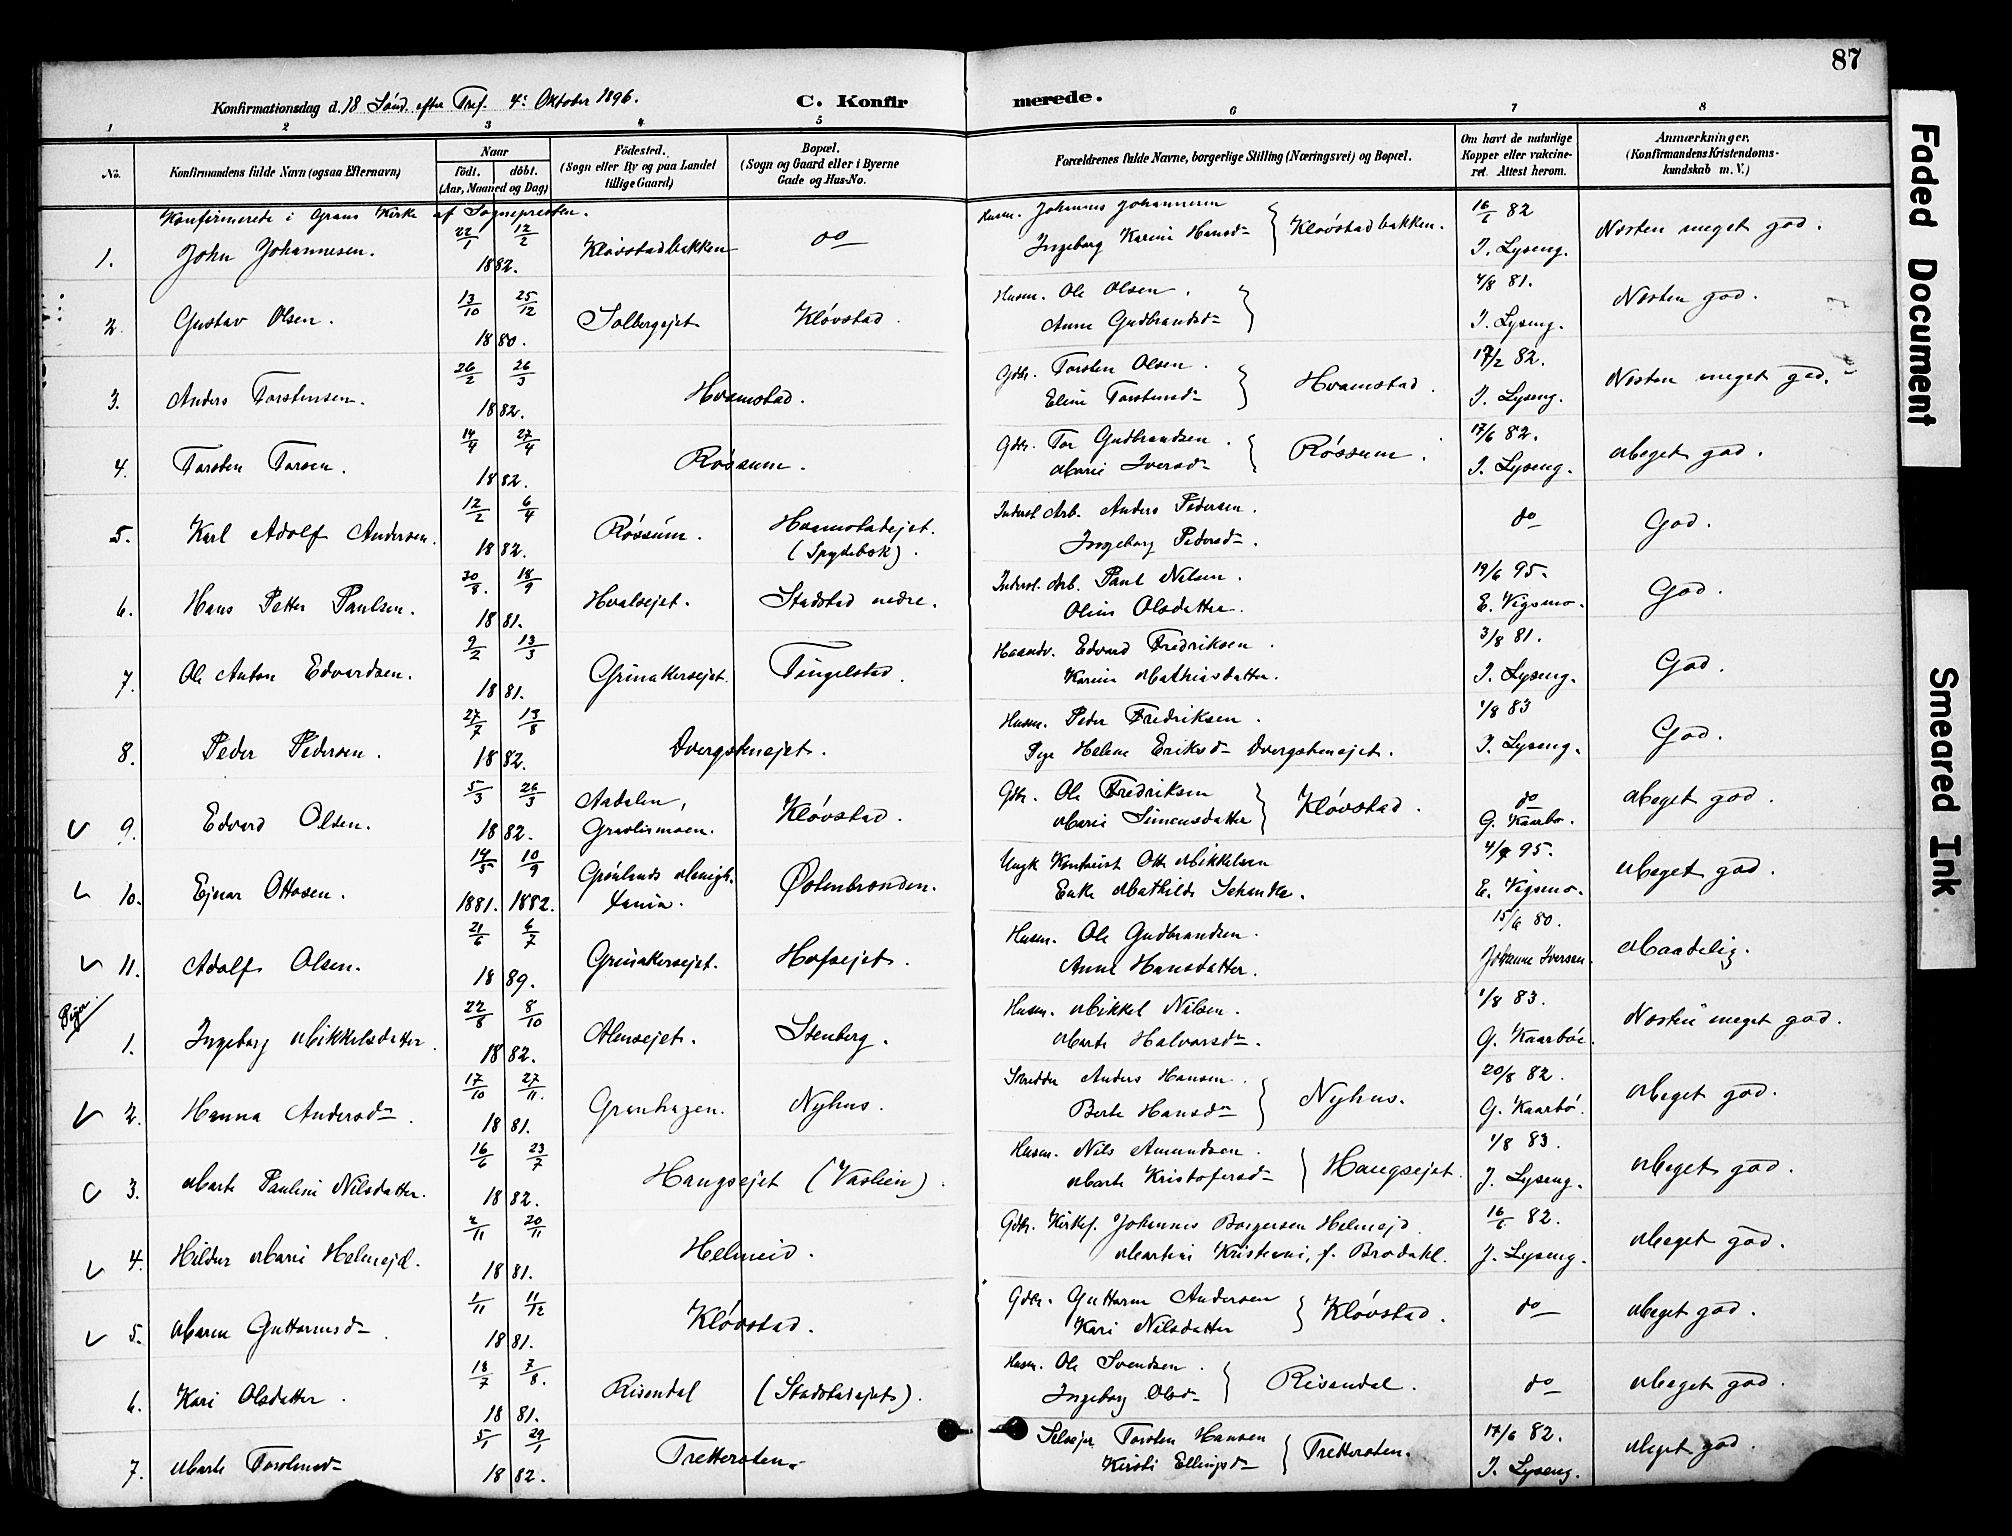 87
Konfirmationsdag d. 18 Sönd. efter Tref. 4: Oktober 1896.
C. Konfir
merede.
1 2 3 4 5 6 7 8
No.
Konfirmandens fulde Navn (ogsaa Efternavn)
Naar
födt. döbt.
(Aar, Maaned og Dag)
Födested.
(Sogn eller By og paa Landet
tillige Gaard)
Bopæl.
(Sogn og Gaard eller i Byerne
Gade og Hus-No.
Forældrenes fulde Navne, borgerlige Stilling (Næringsvei) og Bopæl.
Om havt de naturlige
Kopper eller vakcine-
ret. Attest herom.
Anmærkninger.
(Konfirmandens Kristendoms-
kundskab m. V.)
Konfirmerede i Grans Kirke af Sognepresten.
1. John Johannesen. 22/1 12/2 1882. Kløvstadbakken do
Husm. Johannes Johannesen
Ingeborg Karine Hansd. } Kløvstadbakken. 16/6 82 I. Lyseng. Nesten meget god.
2. Gustav Olsen. 13/10 25/12 1880. Solbergejet Kløvstad.
Husm. Ole Olsen.
Anne Gudbrandsd. } 4/8 81. I. Lyseng. Nesten god.
3. Anders Torstensen. 26/2 26/3 1882. Hvamstad.
Gdbr. Torsten Olsen.
Eline Torstensd. } Hvamstad. 17/2 82. I. Lyseng. Nesten meget god.
4. Torsten Torsen. 14/4 27/4 1882. Røssum.
Gdbr. Tor Gudbrandsen.
Marie Iversd. } Røssum. 17/6 82. I. Lyseng. Meget god.
5. Karl Adolf Andersen. 12/2 6/4 1882. Røssum. Hvamstadejet.
(Spydebøk).
Inderst. Arb. Anders Pedersen.
Ingeborg Pedersd. do God.
6. Hans Petter Paulsen. 30/8. 18/9 1881. Hvalsejet. Stadstad nedre.
Inderst. Arb. Paul Nilsen.
Oline Olsdatter. 19/6 95. E. Vigsmo. God.
7. Ole Anton Edvardsen. 2/2 13/3 1881. Grinakersejet. Tingelstad.
Haandv. Edvard Fredriksen.
Karine Mathiasdatter. 3/8 81. I. Lyseng. God.
8. Peder Pedersen. 27/7 13/8 1882. Dvergstenejet.
Husm. Peder Fredriksen.
Pige Helene Eriksd. Dvergstenejet. 1/8 83 I. Lyseng. God.
9. Edvard Olsen. 5/3 26/3 1882. Aadalen,
Gravlismoen. Kløvstad.
Gdbr. Ole Fredriksen
Marie Simensdatter } Kløvstad. do G. Kaarbø. Meget god.
10. Ejnar Ottosen. 14/5 10/9 1881. 1882. Grønlands Menigh.
Xania. Østenbronden.
Ungk. Kontorist Otto Mikkelsen
Enke Mathilde Schanke. 4/7 95. E. Vigsmo. Meget god.
11. Adolf Olsen. 21/6 6/7 1889. Grinakersejet. Hofsejet.
Husm. Ole Gudbrandsen.
Anne Hansdatter. 15/6 80. Johanne Iversen. Maadelig.
Piger
1. Ingeborg Mikkelsdatter 22/8 8/10 1882. Alensejet. Stenberg.
Husm. Mikkel Nilsen.
Marte Halvorsd. 1/8 83. G. Kaarbøe. Nesten meget god.
2. Hanna Andersd. 17/10 27/11. 1881. Granhagen. Nyhus.
Skredder Anders Hansen.
Berte Hansd. } Nyhus. 20/8 82. G. Kaarbø. Meget god.
3. Marte Pauline Nilsdatter. 16/6 23/7 1882. Haugsejet (Vaslien).
Husm. Nils Amundsen.
Marte Kristofersd. } Haugsejet. 1/8 83. J. Lyseng. Meget god.
4. Hildur Marie Helmejd. 2/11 20/11 1881. Helmeid.
Gdbr. Kirkes. Johannes Borgersen Helmejd
Martine Kristiani, f. Brodahl. 16/6 82. J. Lyseng. Meget god.
5. Maren Guttormsd. 1/11 11/12 1881. Kløvstad.
Gdbr. Guttorm Andersen
Kari Nilsdatter } Kløvstad. do Meget god.
6. Kari Olsdatter. 18/7 7/8. 1881. Risendal (Stadstadejet).
Husm. Ole Svendsen.
Ingeborg Olsd. } Risendal. do Meget god.
7. Marte Torstensd. 5/1 29/1 1882. Trettersten.
Selvejer Torsten Hansen
Kirsti Ellingsd. } Trettersten. 17/6 82. I. Lyseng. Meget god.
Faded Document
Smeared Ink